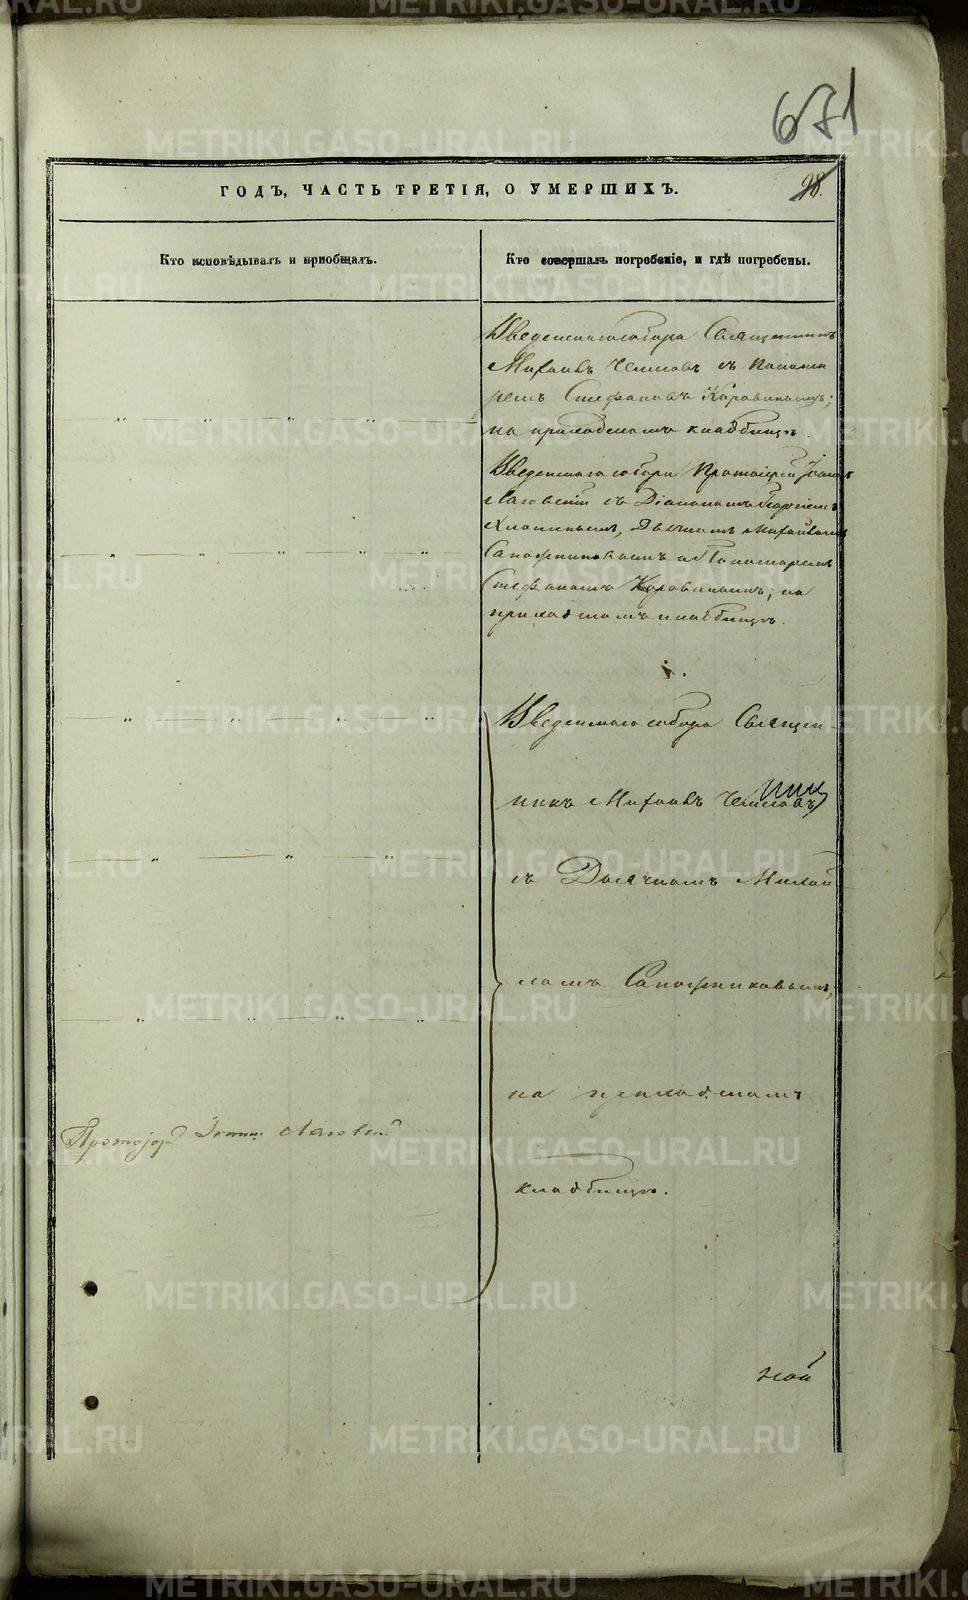 671
ГОДЪ, ЧАСТЬ ТРЕТІЯ, О УМЕРШИХЪ.
98.
Кто исповѣдывалъ и пріобщалъ.
Кто совершалъ погребеніе, и гдѣ погребены.
Введенскаго собора Священникъ
Михаилъ с Понома
ремъ Стефаномъ Коровинымъ;
на приходскомъ кладбищѣ.
Введенскаго собора Протоіерей Іоаннъ
съ Діакономъ Георгіемъ
Дьячкомъ Михайломъ
Сапожниковымъ и Пономаремъ
Стефаномъ Коровинымъ; на
приходскомъ кладбищѣ.
Введенскаго собора Священ
никъ Михаилъ
съ Дьячкомъ Михай
ломъ Сапожниковымъ,
на приходскомъ
Протоіер
кладбищѣ.
METRIKI.GASO-URAL.RU